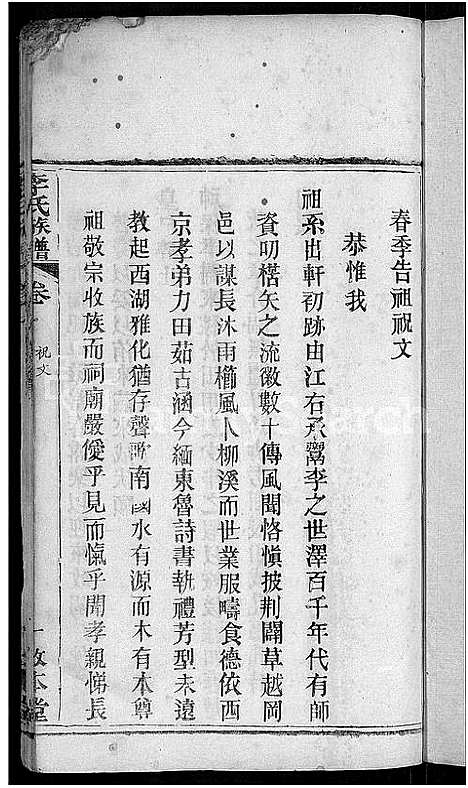 春季告祖祝文
恭惟我
祖系出軒初跡由江右承鬻李之世澤百千年代有師
資叨楛矢之流徽數十傳風聞恪愼披荆闢草越岡
邑以謀長沐雨櫛風卜柳溪而世業服疇食德依西
京孝弟力田茹古涵今緬東魯詩書執禮芳型未遠
教起西湖雅化猶存聲歌南國水有源而木有本尊
祖敬宗收族而祠廟嚴僾乎見而愾乎聞孝親悌長
李氏族譜
卷
祝文
一
敦本堂